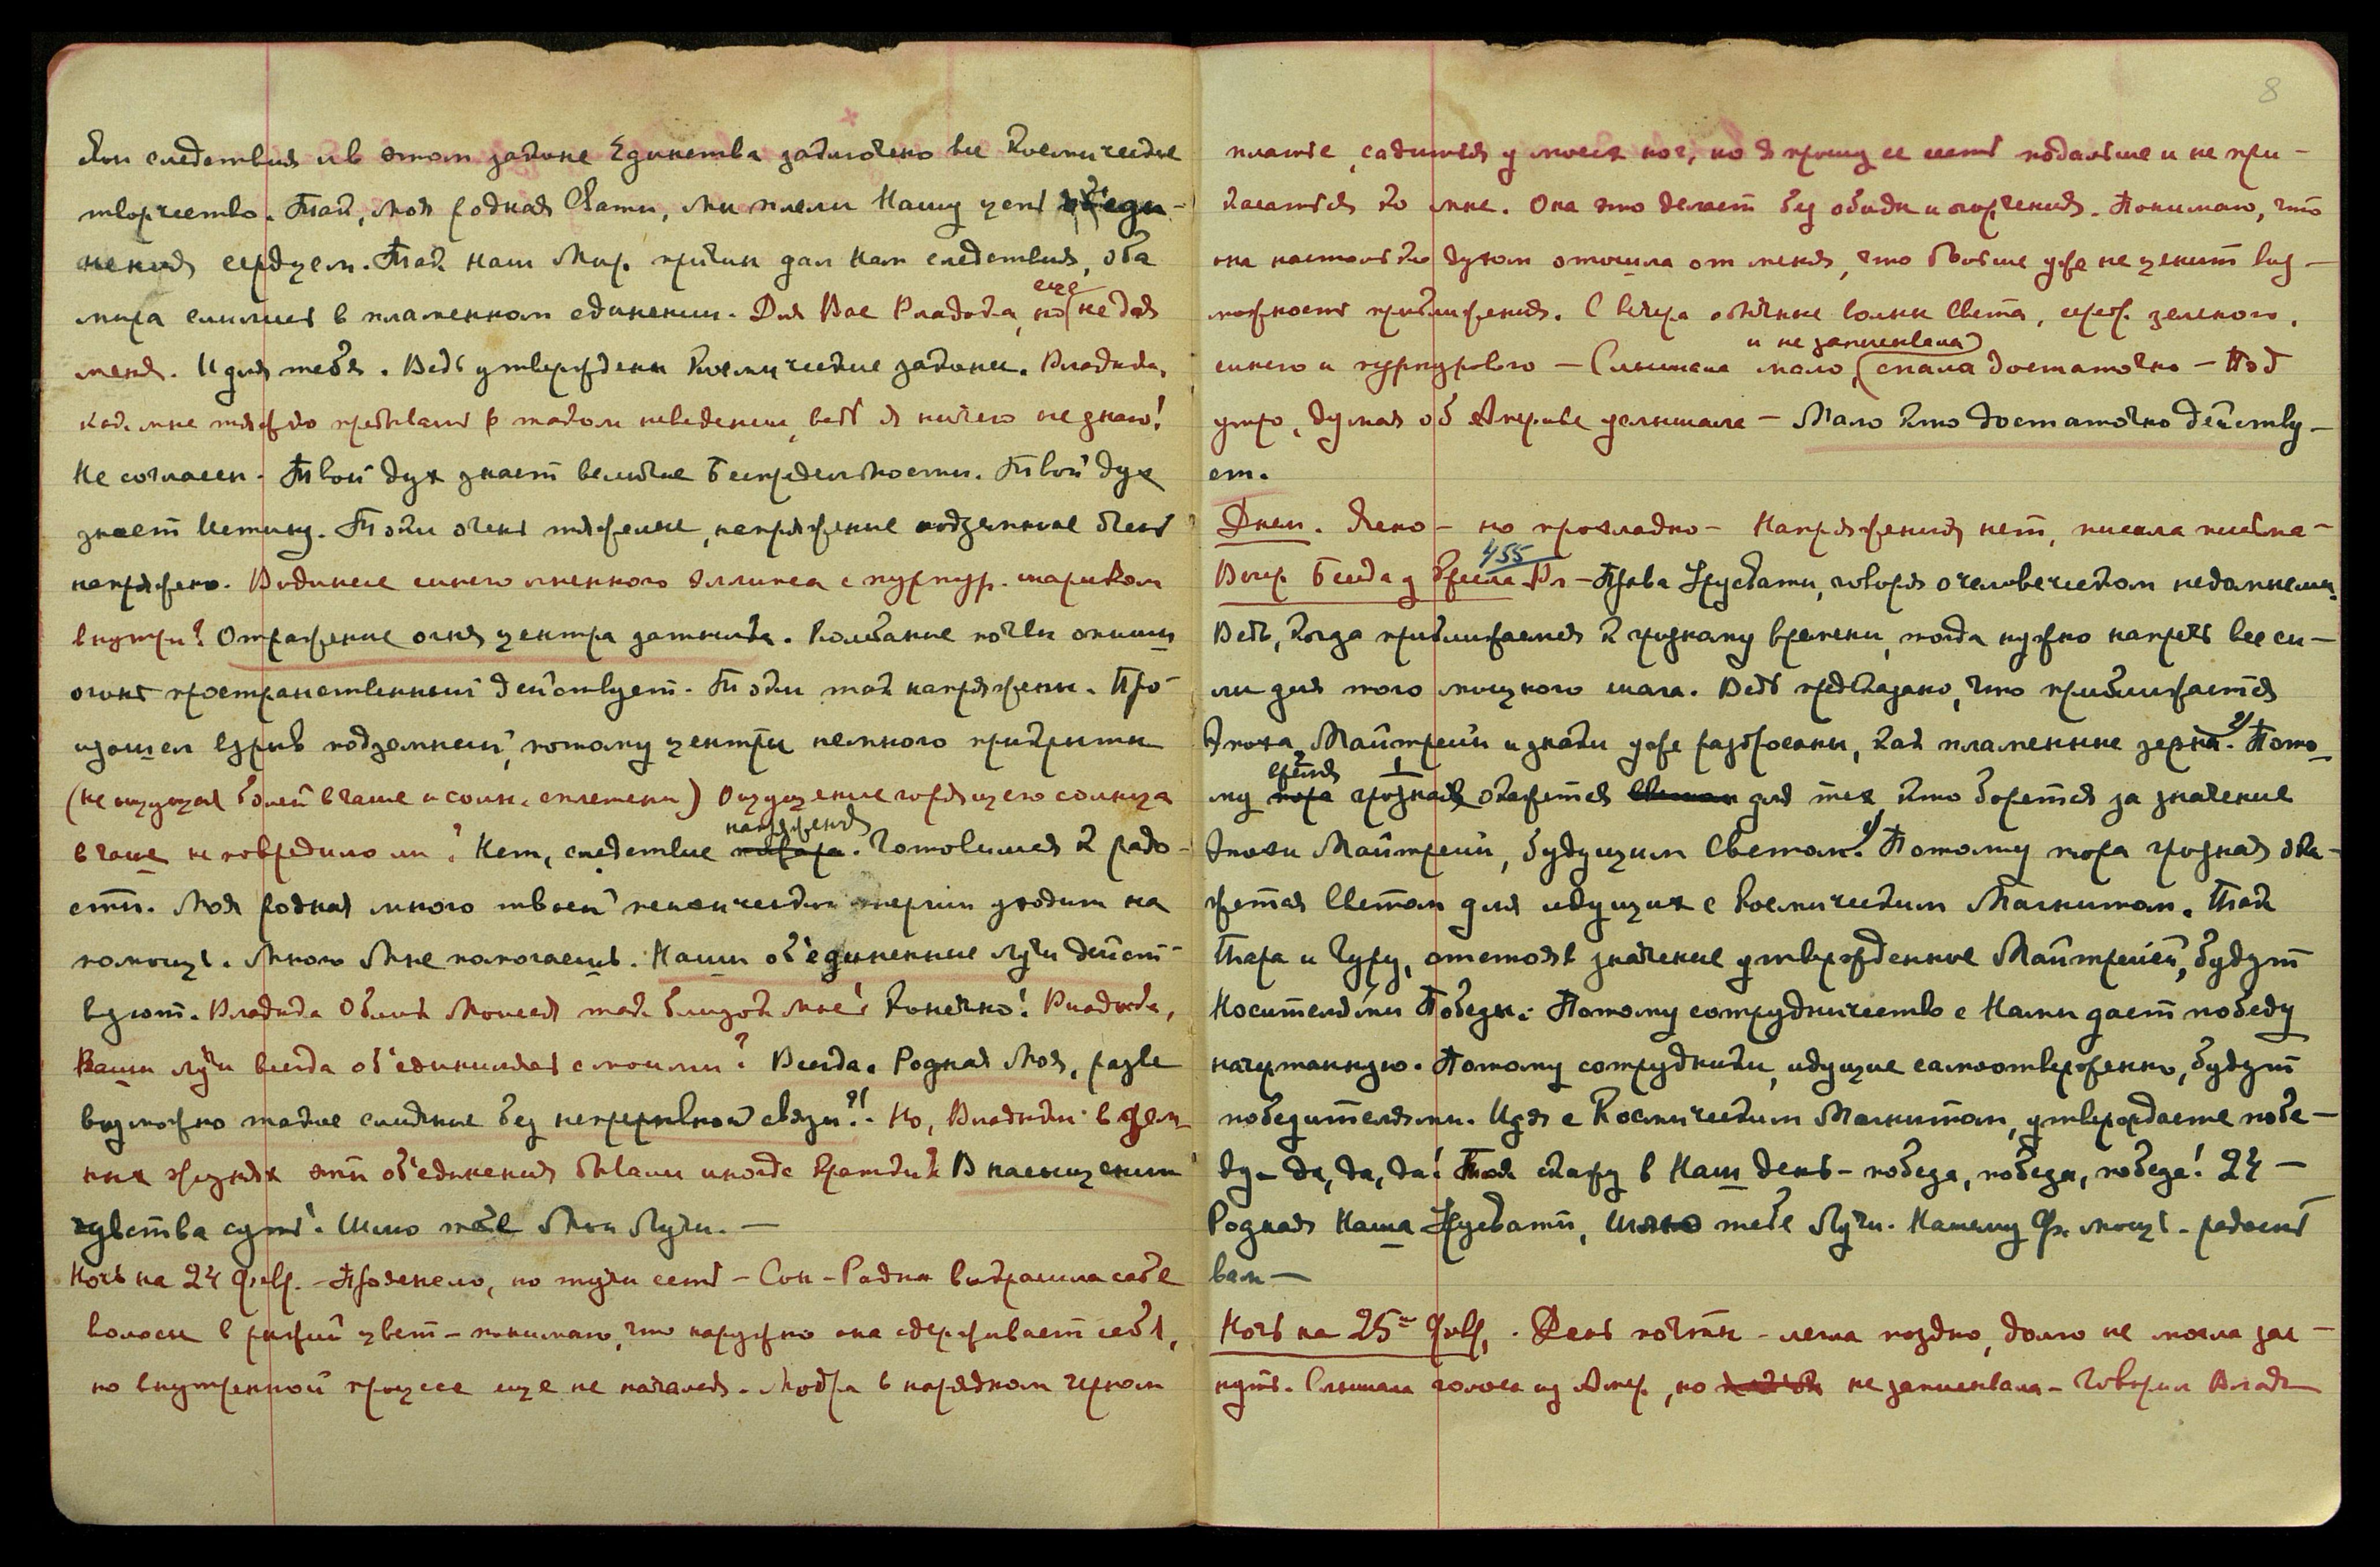 кон следствия и в этом законе Единства заключено все Космическое
творчество. Так, моя родная Свати, мы плели Нашу цепь об'еди-
нения сердцем. Так наш Мир. причин дал Нам следствия, оба
мира слились в пламенном единении. Для Вас Владыка, но еще не для
меня. И для тебя. Ведь утверждены Космические законы. Владыка,
как мне тяжко пребывать в таком неведении, ведь я ничего не знаю!
Не согласен. Твой дух знает величие Беспредельности. Твой дух
знает Истину. Токи очень тяжелые, напряжение подземное очень
напряжено. Видение синего огненного эллипса с пурпур. шариком
внутри? Отражение огня центра затылка. Колебание почвы опиши
огонь пространственный действует. Токи так напряжены. Про-
изошел взрыв подземный, потому центры немного прикрыты
(не ощущая болей в чаше и солн. сплетении) Ощущение горящего солнца
в чаше не повредило ли? Нет, следствие напряжения. Готовимся к радо-
сти. Моя родная много твоей психической энергии уходит на
помощь. Много Мне помогаешь. Наши об'единенные лучи дейст-
вуют. Владыка Облик Моисея так близок мне! Конечно! Владыка,
Ваши лучи всегда об'единились с моими? Всегда. Родная Моя, разве
возможно такое слияние без непрерывной связи?! Но, Владыка в зем-
ных жизнях эти об'единения бывали иногда кратки? В насыщении
чувства суть. Шлю тебе Мои Лучи. —
Ночь на 24 февр. - Прояснело, но тучи есть - Сон - Радна выкрасила себе
волосы в рыжий цвет - понимаю, что наружно она сдерживает себя,
но внутренний процесс еще не начался. Модра в нарядном черном
8
платье, садится у моих ног, но я прошу ее сесть подальше и не при-
касаться ко мне. Она это делает без обиды и огорчения. Понимаю, что
она настолько духом отошла от меня, что больше уже не ценит воз-
можность приближения. С вечера обычные волны света, сереб. зеленого,
синего и пурпурового - Слышала мало, и не записывала спала достаточно - Под
утро, думая об Америке услышала - Мало кто достаточно действу-
ет.
Днем. Ясно - но прохладно - Напряжения нет, писала письма -
455
Вечер. Беседа у Кресла Вл - Права Урусвати, говоря о человеческом недомыслии.
Ведь, когда приближаемся к грозному времени, тогда нужно напречь все си-
лы для того мощного шага. Ведь предсказано, что приближается
Эпоха Майтрейи и знаки уже разбросаны, как пламенные зерна. Пото-
му время грозное окажется для тех кто борется за значение
Эпохи Майтрейи, будущим Светом. Потому пора грозная ока-
жется Светом для идущих с Космическим Магнитом. Так
Тара и Гуру, отстояв значение утвержденное Майтрейей, будут
Носителями Победы. Потому сотрудничество с Нами дает победу
начертанную. Потому сотрудники, идущие самоотверженно, будут
победителями. Идя с Космическим Магнитом, утверждаете побе-
ду - да, да, да! Так скажу в Наш день - победа, победа, победа! 24 -
Родная Наша Урусвати, Шлю тебе Лучи. Нашему Ф. мощь - радость
вам -
Ночь на 25-ое февр. . День почты - легла поздно, долго не могла зас-
нуть. Слышала голоса из Амер., но не записывала - Говорил Влады